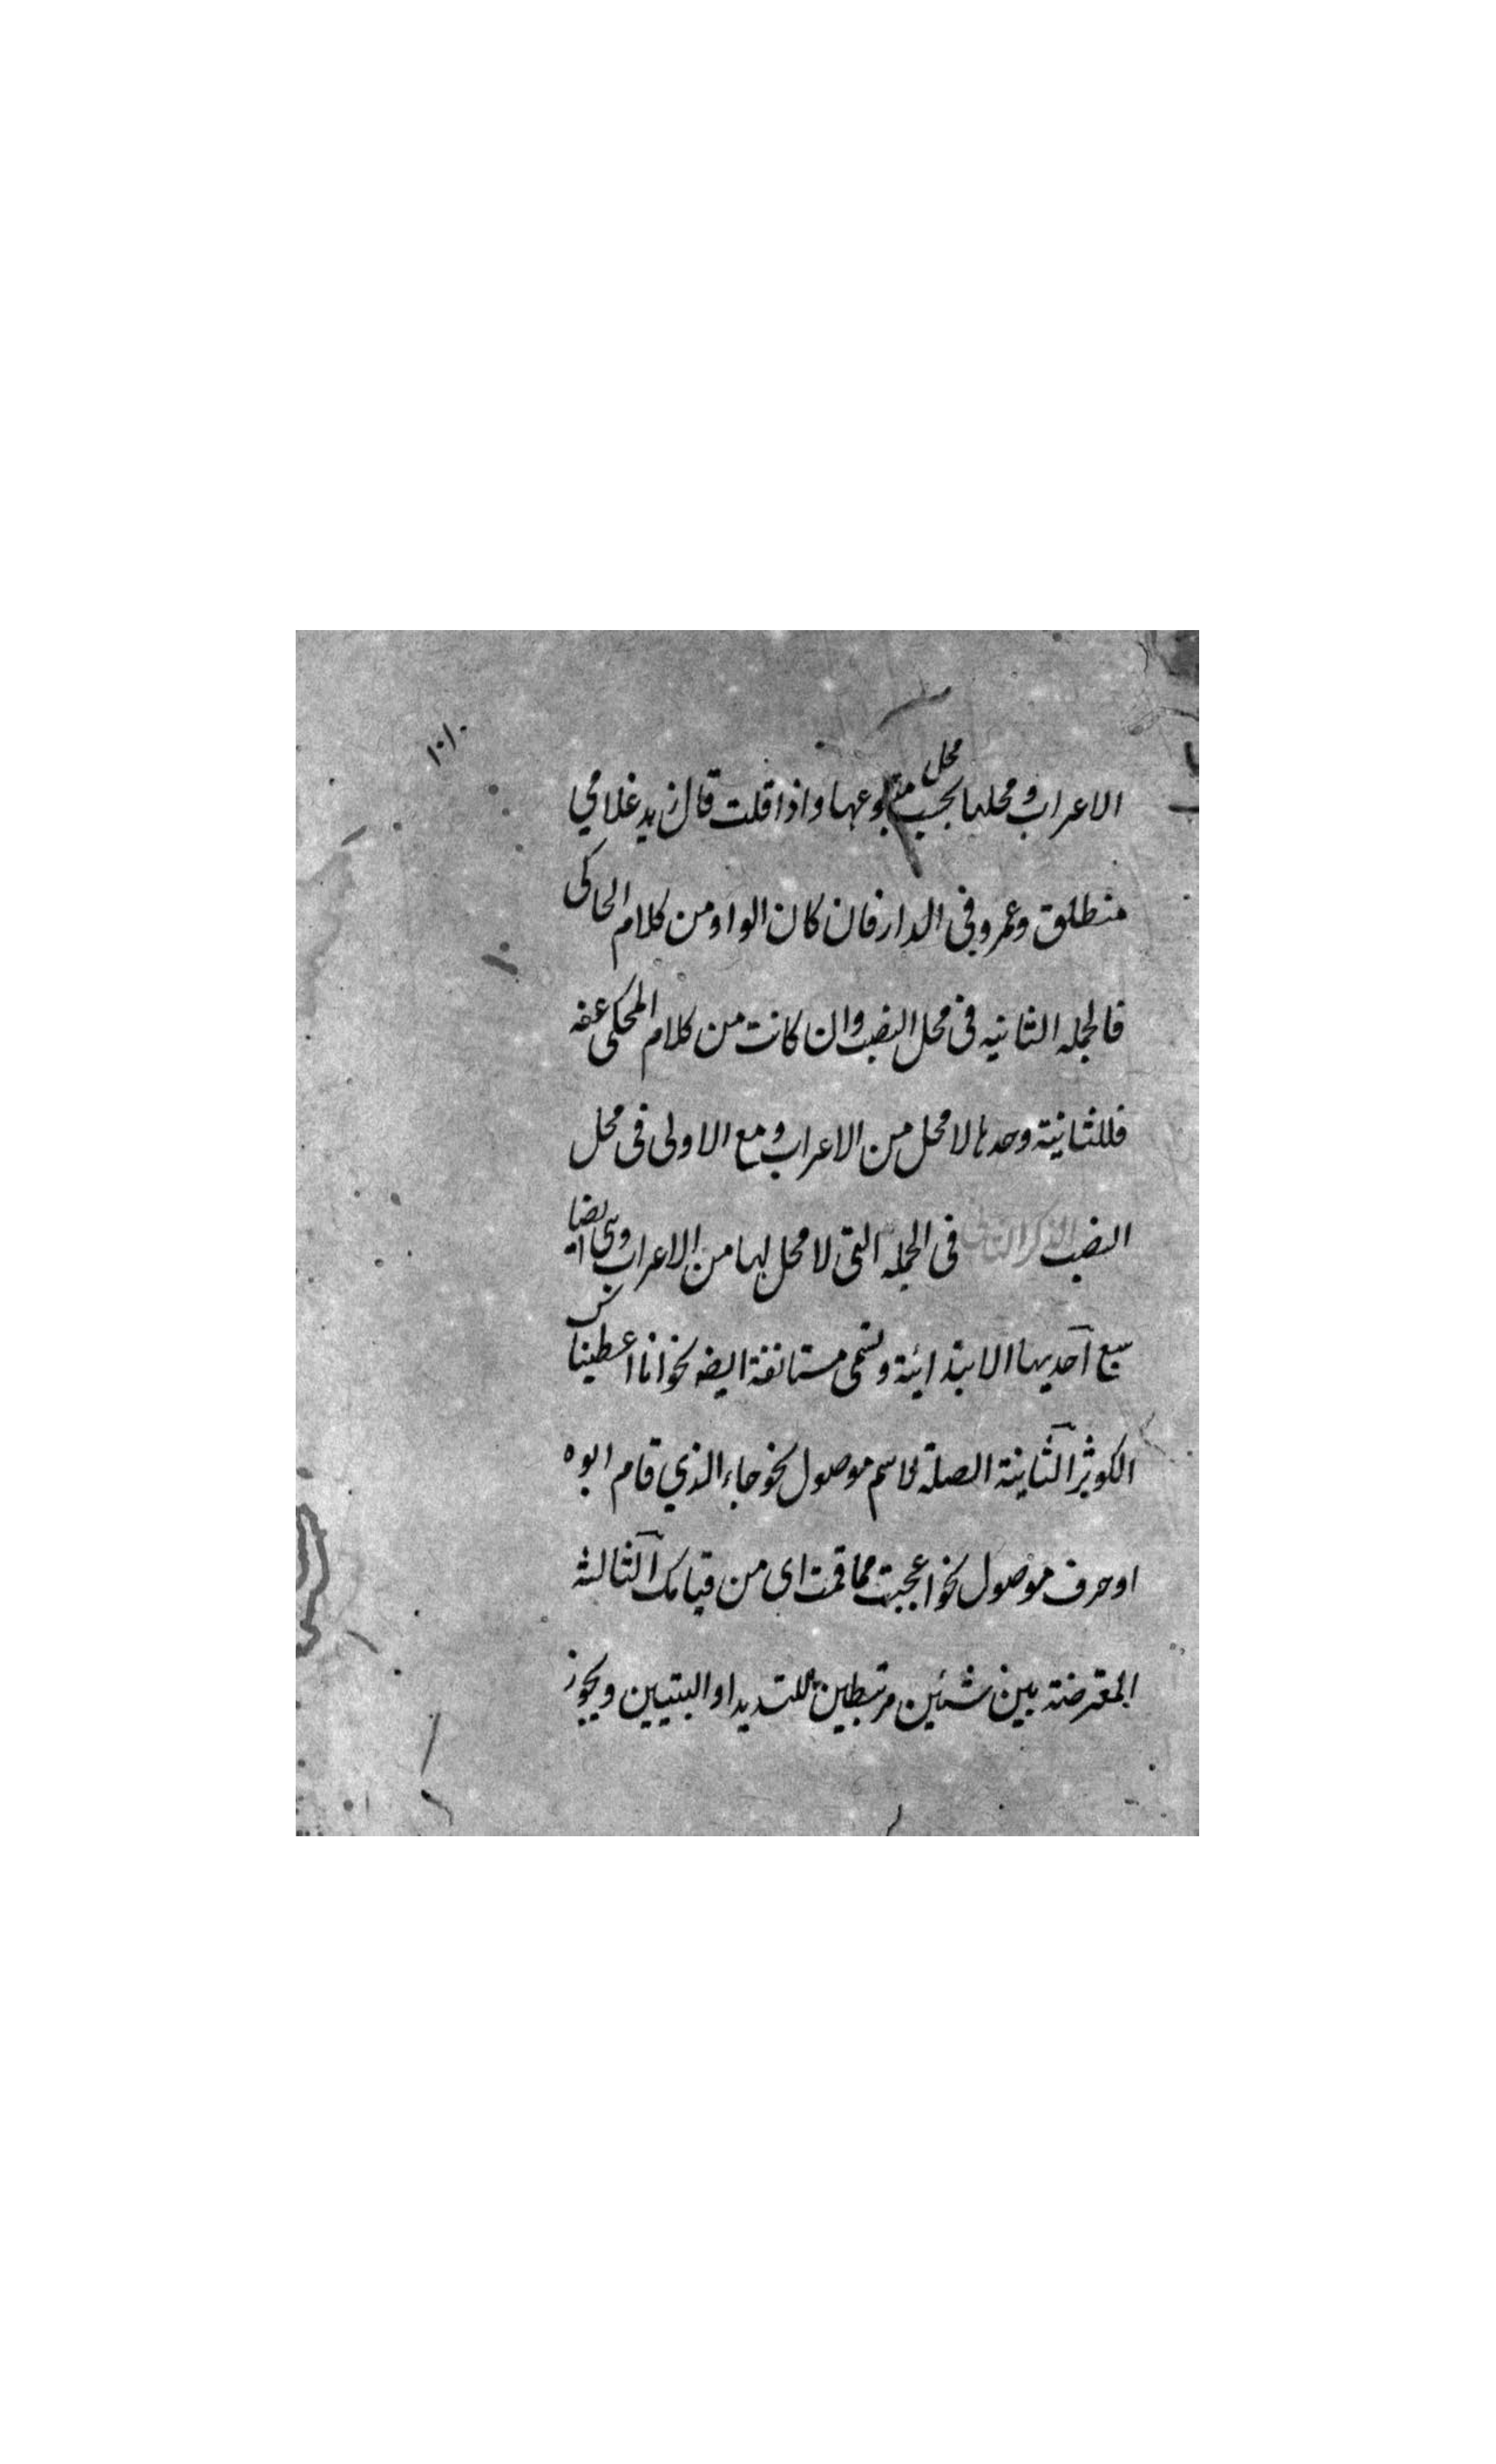 الاعراب ومحلها بحسب محل متبوعها واذا قلت قال زيد غلامي
منطلق وعمرو فى الدار فان كان الواو من كلام الحاكى
فالجمله الثانيه فى محل النصب وان كانت من كلام المحكى عنه
فللثانية وحدها لا محل من الاعراب ومع الاولى فى محل
النصب الذكر الثانى فى الجمله التى لا محل لها من الاعراب وهى ايضا
سبع احديها الابتدائية وتسمى مستانفة ايضه نحو انا اعطيناك
الكوثر الثانية الصلة لاسم موصول نحو جاء الذي قام ابوه
او حرف موصول نحو اعجبت مما قمت اى من قيامك الثالثه
المعترضة بين شئين مرتبطين للتسديد او التبيين ويجوز